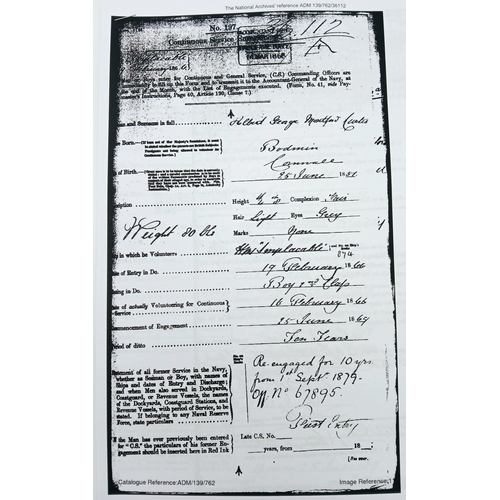 The National Archives' reference ADM 139/762/36112
No. 197.
112
Continuous Service
need for Continuous and General Service, (C.S.) Commanding Officers are
to fill up this Form and to transmit it to the Accountant-General of the Navy, at
end of the Month, with the List of Engagements executed. (Form, No. 41, vide Pay-
master's Instructions, Page 40, Article 120, Clause 7.)
and Surname in full
Albert George
Born
Bodmin
Cornwall
of Birth
25 June
Height
Complexion Fair
Hair Light Eyes Grey
Weight 80 lbs
Marks None
in which he Volunteers
HMS "Implacable"
874
of Entry in Do.
19 February 1866
Rating in Do.
Boy 2nd Class
of actually Volunteering for Continuous Service
16 February 1866
Commencement of Engagement
25 June 1869
Period of ditto
Ten Years
Statement of all former Service in the Navy,
whether as Seaman or Boy, with names of
Ships and dates of Entry and Discharge;
and when Men also served in Dockyards,
Coastguard, or Revenue Vessels, the names
of the Dockyards, Coastguard Stations, and
Revenue Vessels, with period of Service, to be
stated. If belonging to any Naval Reserve
Force, state particulars
Re-engaged for 10 yrs.
from 1st Sept 1879.
Off. No 67895.
First Entry
If the Man has ever previously been entered
for "C.S." the particulars of his former En-
gagement should be inserted here in Red Ink
Late C.S. No.
years, from 18
Catalogue Reference:ADM/139/762
Image Reference:1